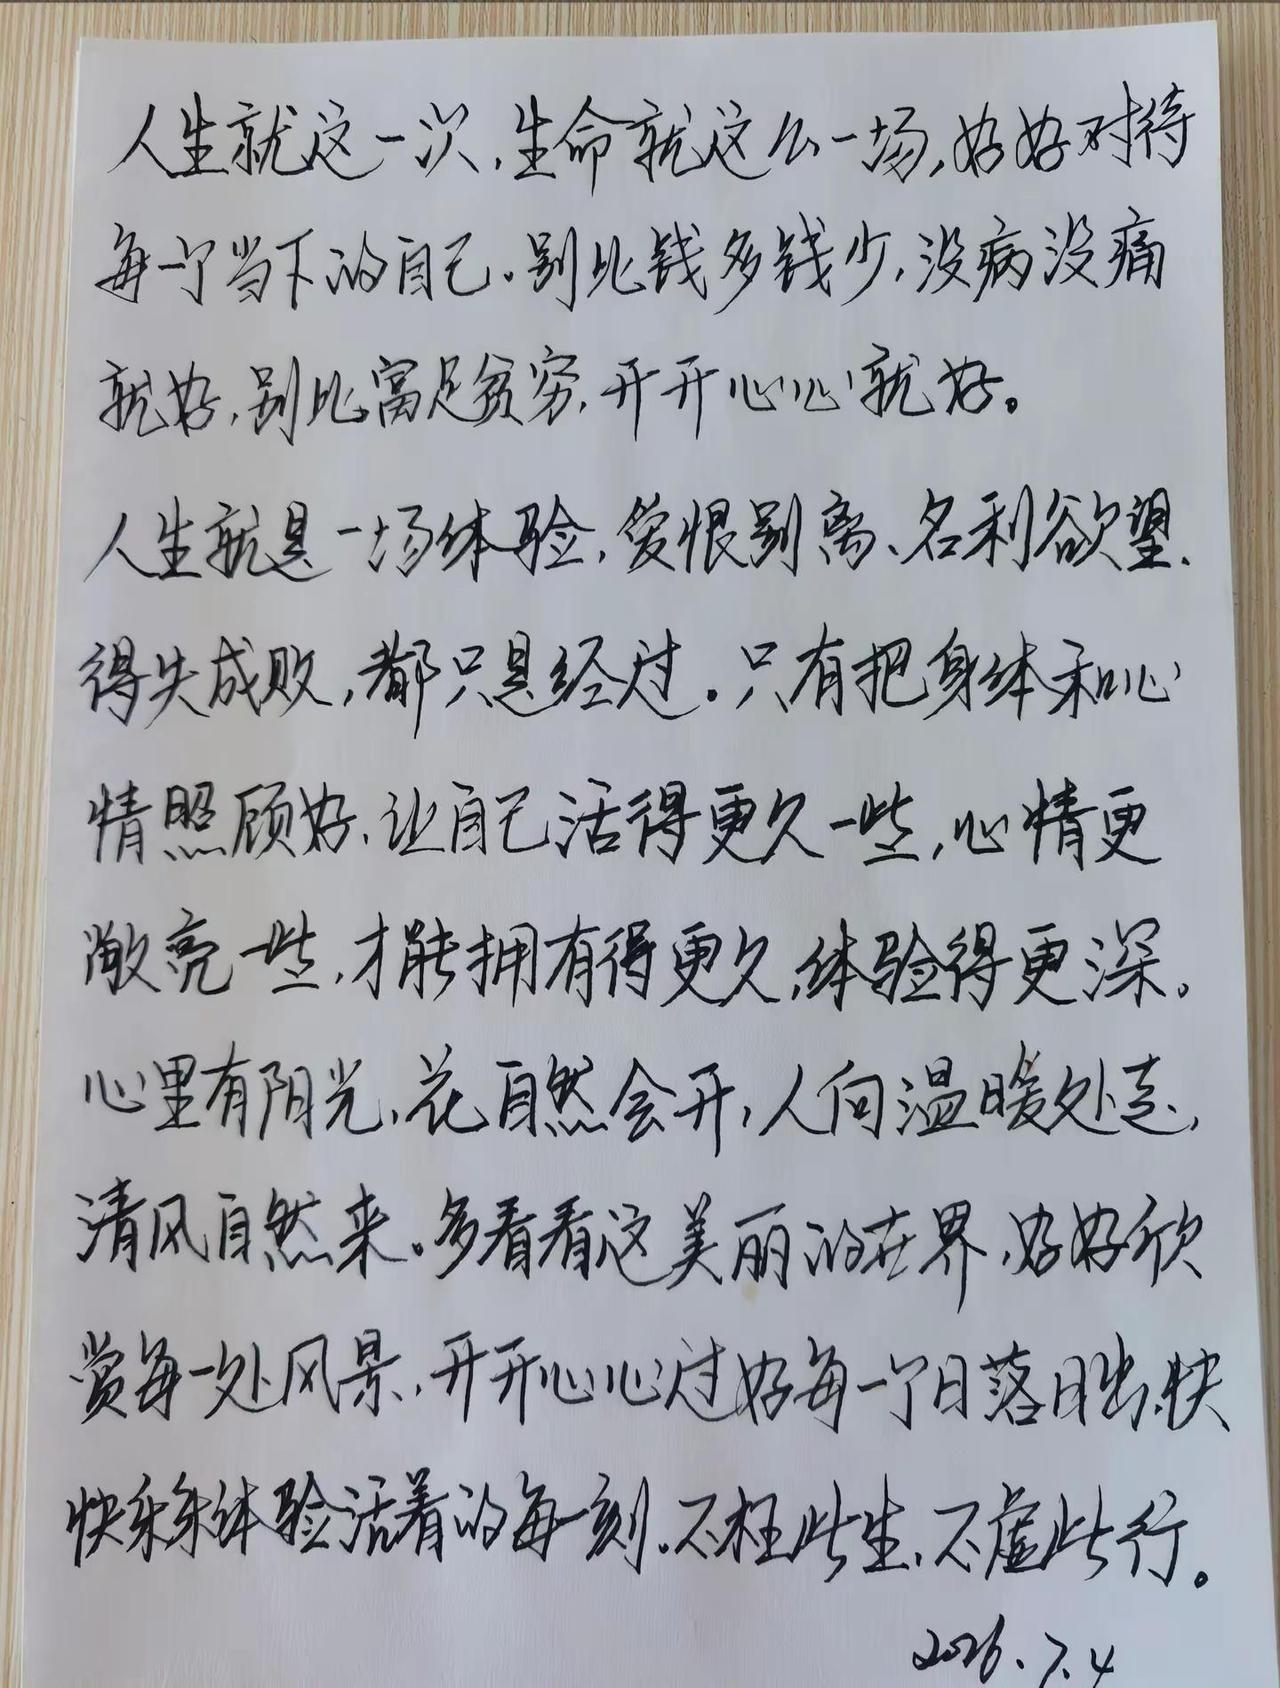 人生就这一次,生命就这么一场,好好对待
每一个当下的自己。别比钱多钱少,没病没痛
就好,别比富足贫穷,开开心心就好。
人生就是一场体验,爱恨别离、名利欲望、
得失成败,都只是经过。只有把身体和心
情照顾好,让自己活得更久一些,心情更
敞亮一些,才能拥有得更久,体验得更深。
心里有阳光,花自然会开,人向温暖处走,
清风自然来。多看看这美丽的世界,好好欣
赏每一处风景,开开心心过好每一个日落日出,快
快乐乐体验活着的每一刻.不枉此生,不虚此行。
2026.7.4